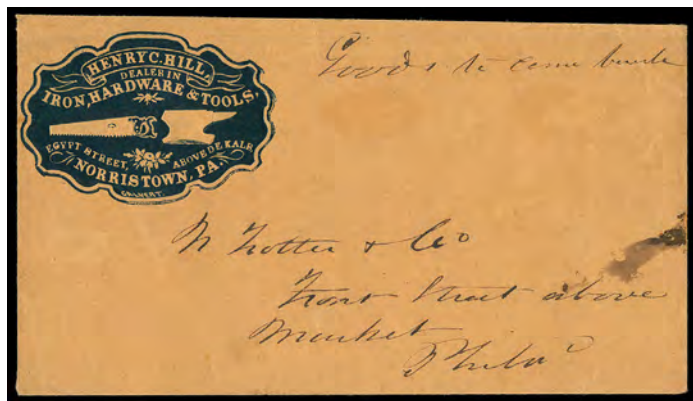 HENRY C. HILL,
DEALER IN
IRON, HARDWARE & TOOLS,
EGYPT STREET, ABOVE DE KALB
NORRISTOWN, PA.
Goods to come
N Trotter & Co
Front Street above
Market
Phila